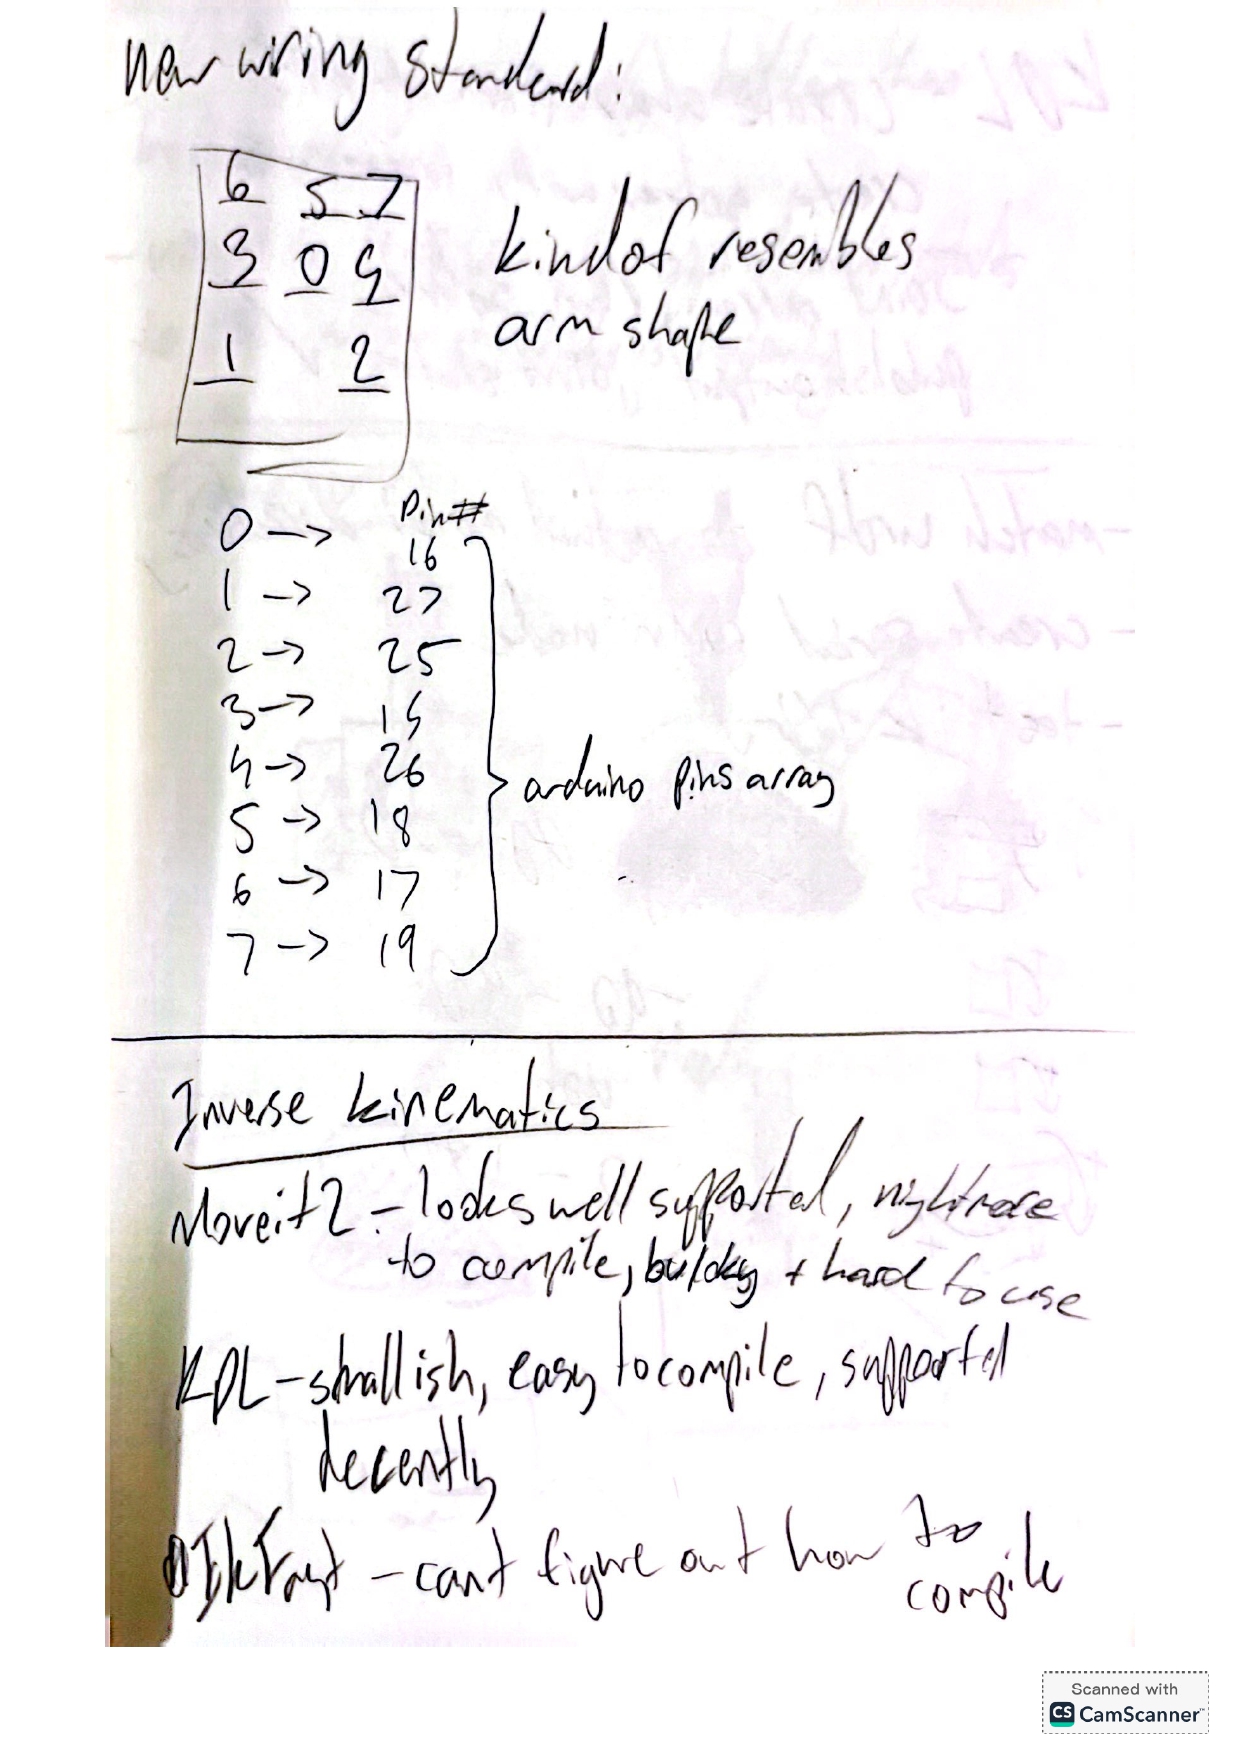 New wiring standard:
6 5 7
3 0 4
1 2
kind of resembles
arm shape
Pin#
0 -> 16
1 -> 27
2 -> 25
3 -> 15
4 -> 26
5 -> 18
6 -> 17
7 -> 19
arduino pins array
Inverse kinematics
Moveit2 - looks well supported, nightmare
to compile, bulky + hard to use
KDL - smallish, easy to compile, supported
decently
IkFast - cant figure out how to
compile
Scanned with
CS CamScanner